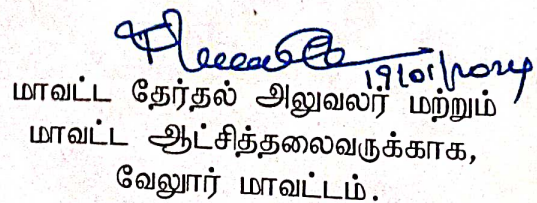 19/01/2024
மாவட்ட தேர்தல் அலுவலர் மற்றும்
மாவட்ட ஆட்சித்தலைவருக்காக,
வேலூர் மாவட்டம்.